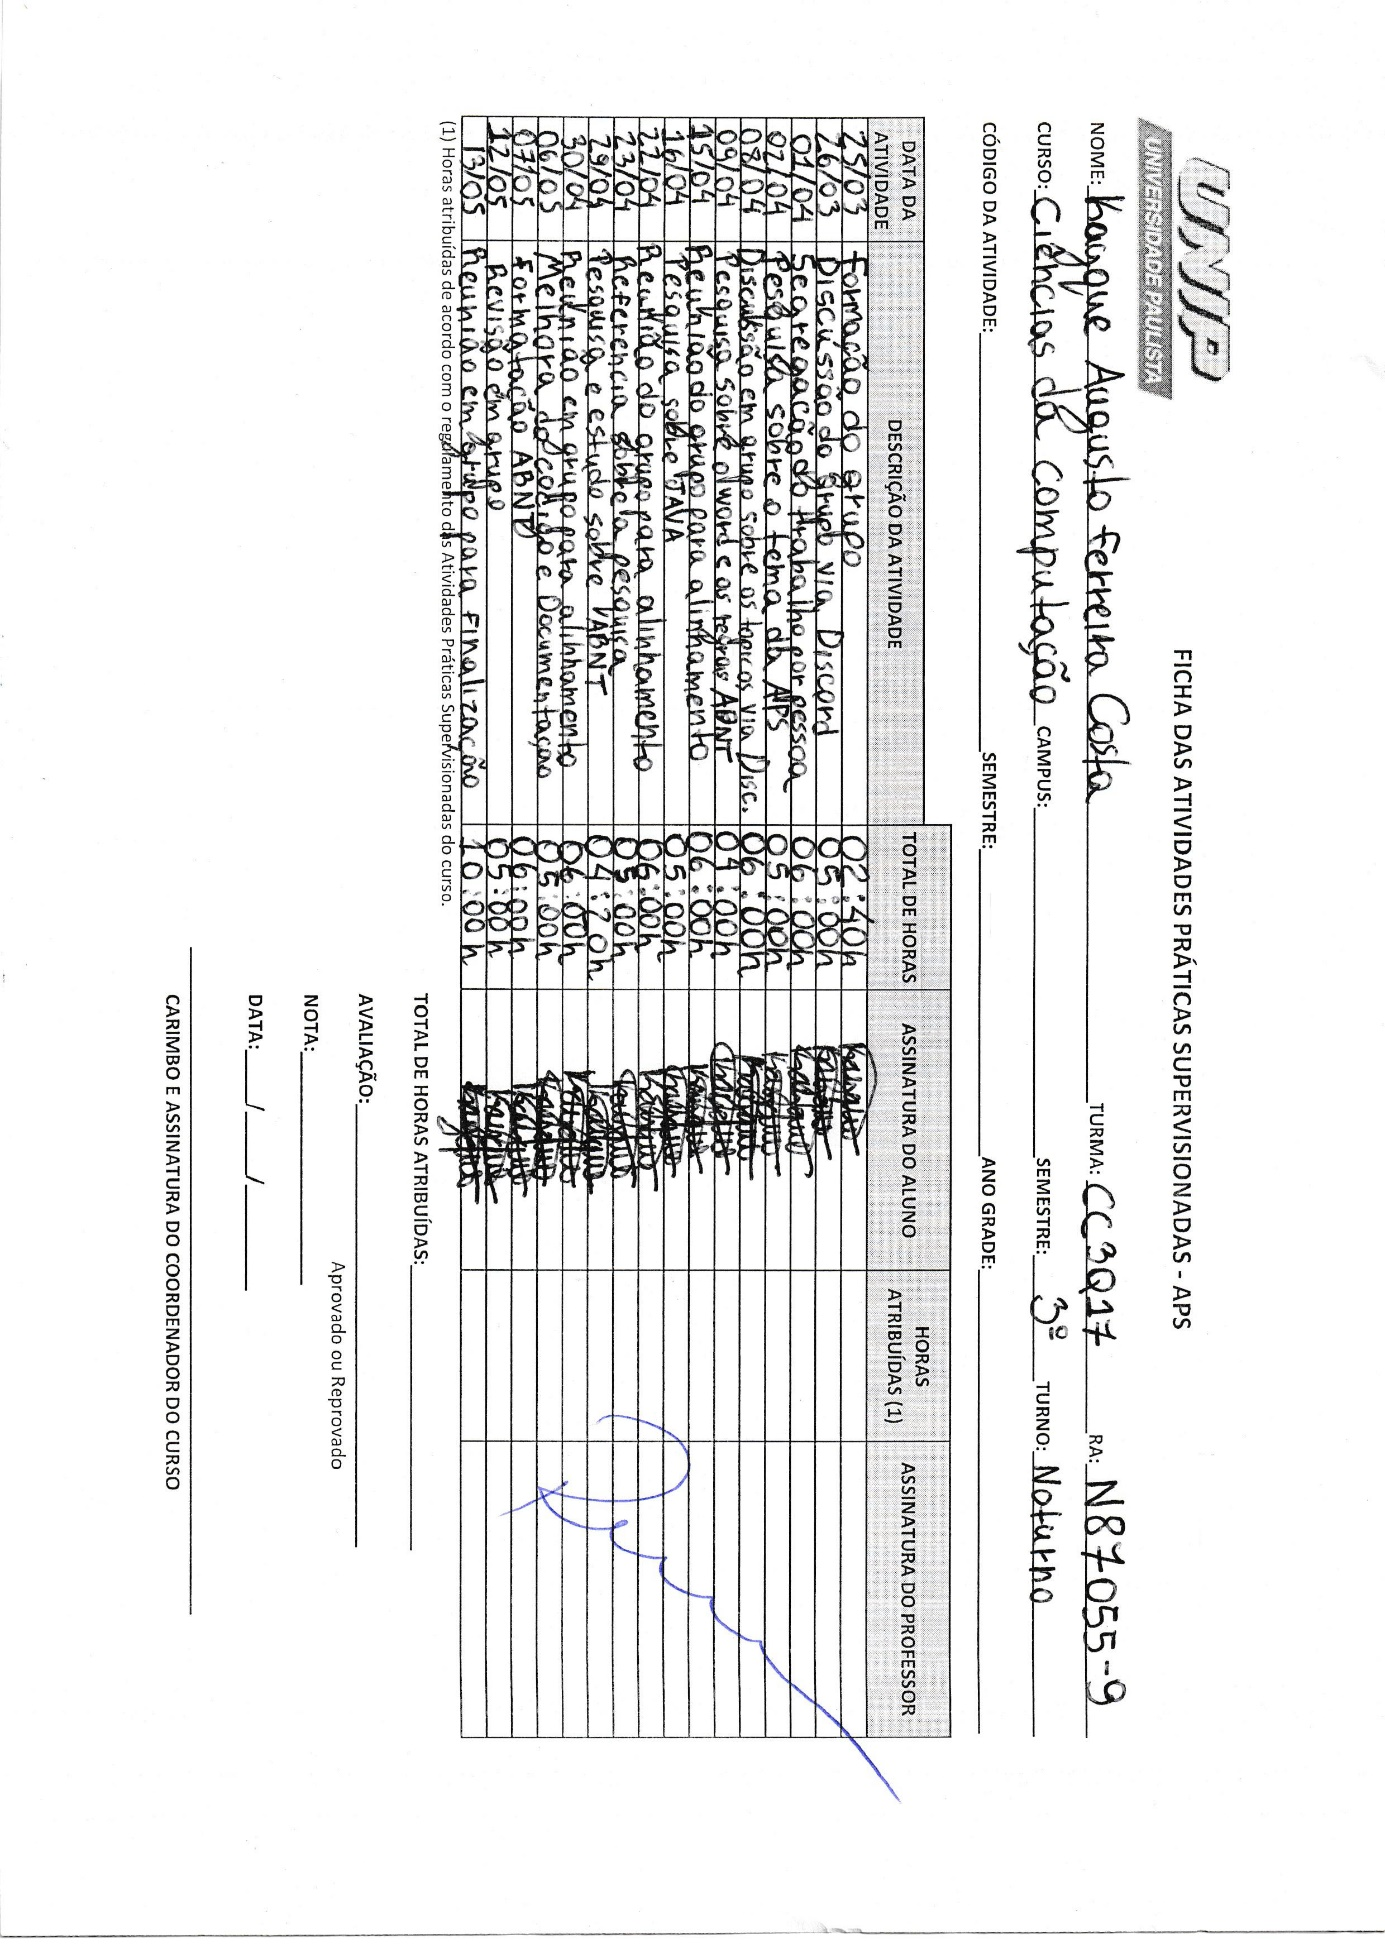 UNIP
UNIVERSIDADE PAULISTA
FICHA DAS ATIVIDADES PRÁTICAS SUPERVISIONADAS - APS
NOME: Kayque Augusto Ferreira Costa TURMA: CC3Q17 RA: N87055-9
CURSO: Ciências da Computação CAMPUS: SEMESTRE: 3º TURNO: Noturno
CÓDIGO DA ATIVIDADE: SEMESTRE: ANO GRADE:
DATA DA ATIVIDADE DESCRIÇÃO DA ATIVIDADE TOTAL DE HORAS ASSINATURA DO ALUNO HORAS ATRIBUÍDAS (1) ASSINATURA DO PROFESSOR
25/03 Formação do grupo 02:40h
26/03 Discussão do grupo via Discord 05:00h
01/04 Segregação do trabalho por pessoa 06:00h
02/04 Pesquisa sobre o tema da APS 05:00h
08/04 Discussão em grupo sobre os topicos via Disc. 06:00h
09/04 Pesquisa sobre o word e as regras ABNT 04:00h
15/04 Reunião do grupo para alinhamento 06:00h
16/04 Pesquisa sobre JAVA 05:00h
22/04 Reunião do grupo para alinhamento 06:00h
23/04 Referencia sobre a pesquisa 05:00h
29/04 Pesquisa e estudo sobre ABNT 04:20h
30/04 Reunião em grupo para alinhamento 06:00h
06/05 Melhora do codigo e Documentação 05:00h
07/05 Formatação ABNT 06:00h
12/05 Revisão em grupo 05:00h
13/05 Reunião em grupo para Finalização 10:00h
(1) Horas atribuídas de acordo com o regulamento das Atividades Práticas Supervisionadas do curso.
TOTAL DE HORAS ATRIBUÍDAS:
AVALIAÇÃO:
Aprovado ou Reprovado
NOTA:
DATA: / /
CARIMBO E ASSINATURA DO COORDENADOR DO CURSO